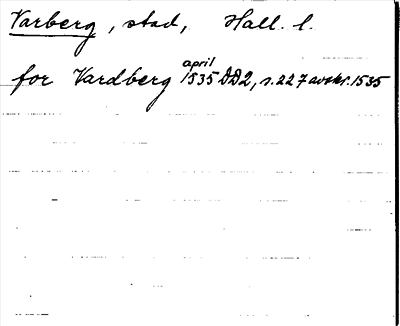 Varberg, stad, Hall. l.
for Vardberg april 1535 DD2, s. 227 avskr. 1535